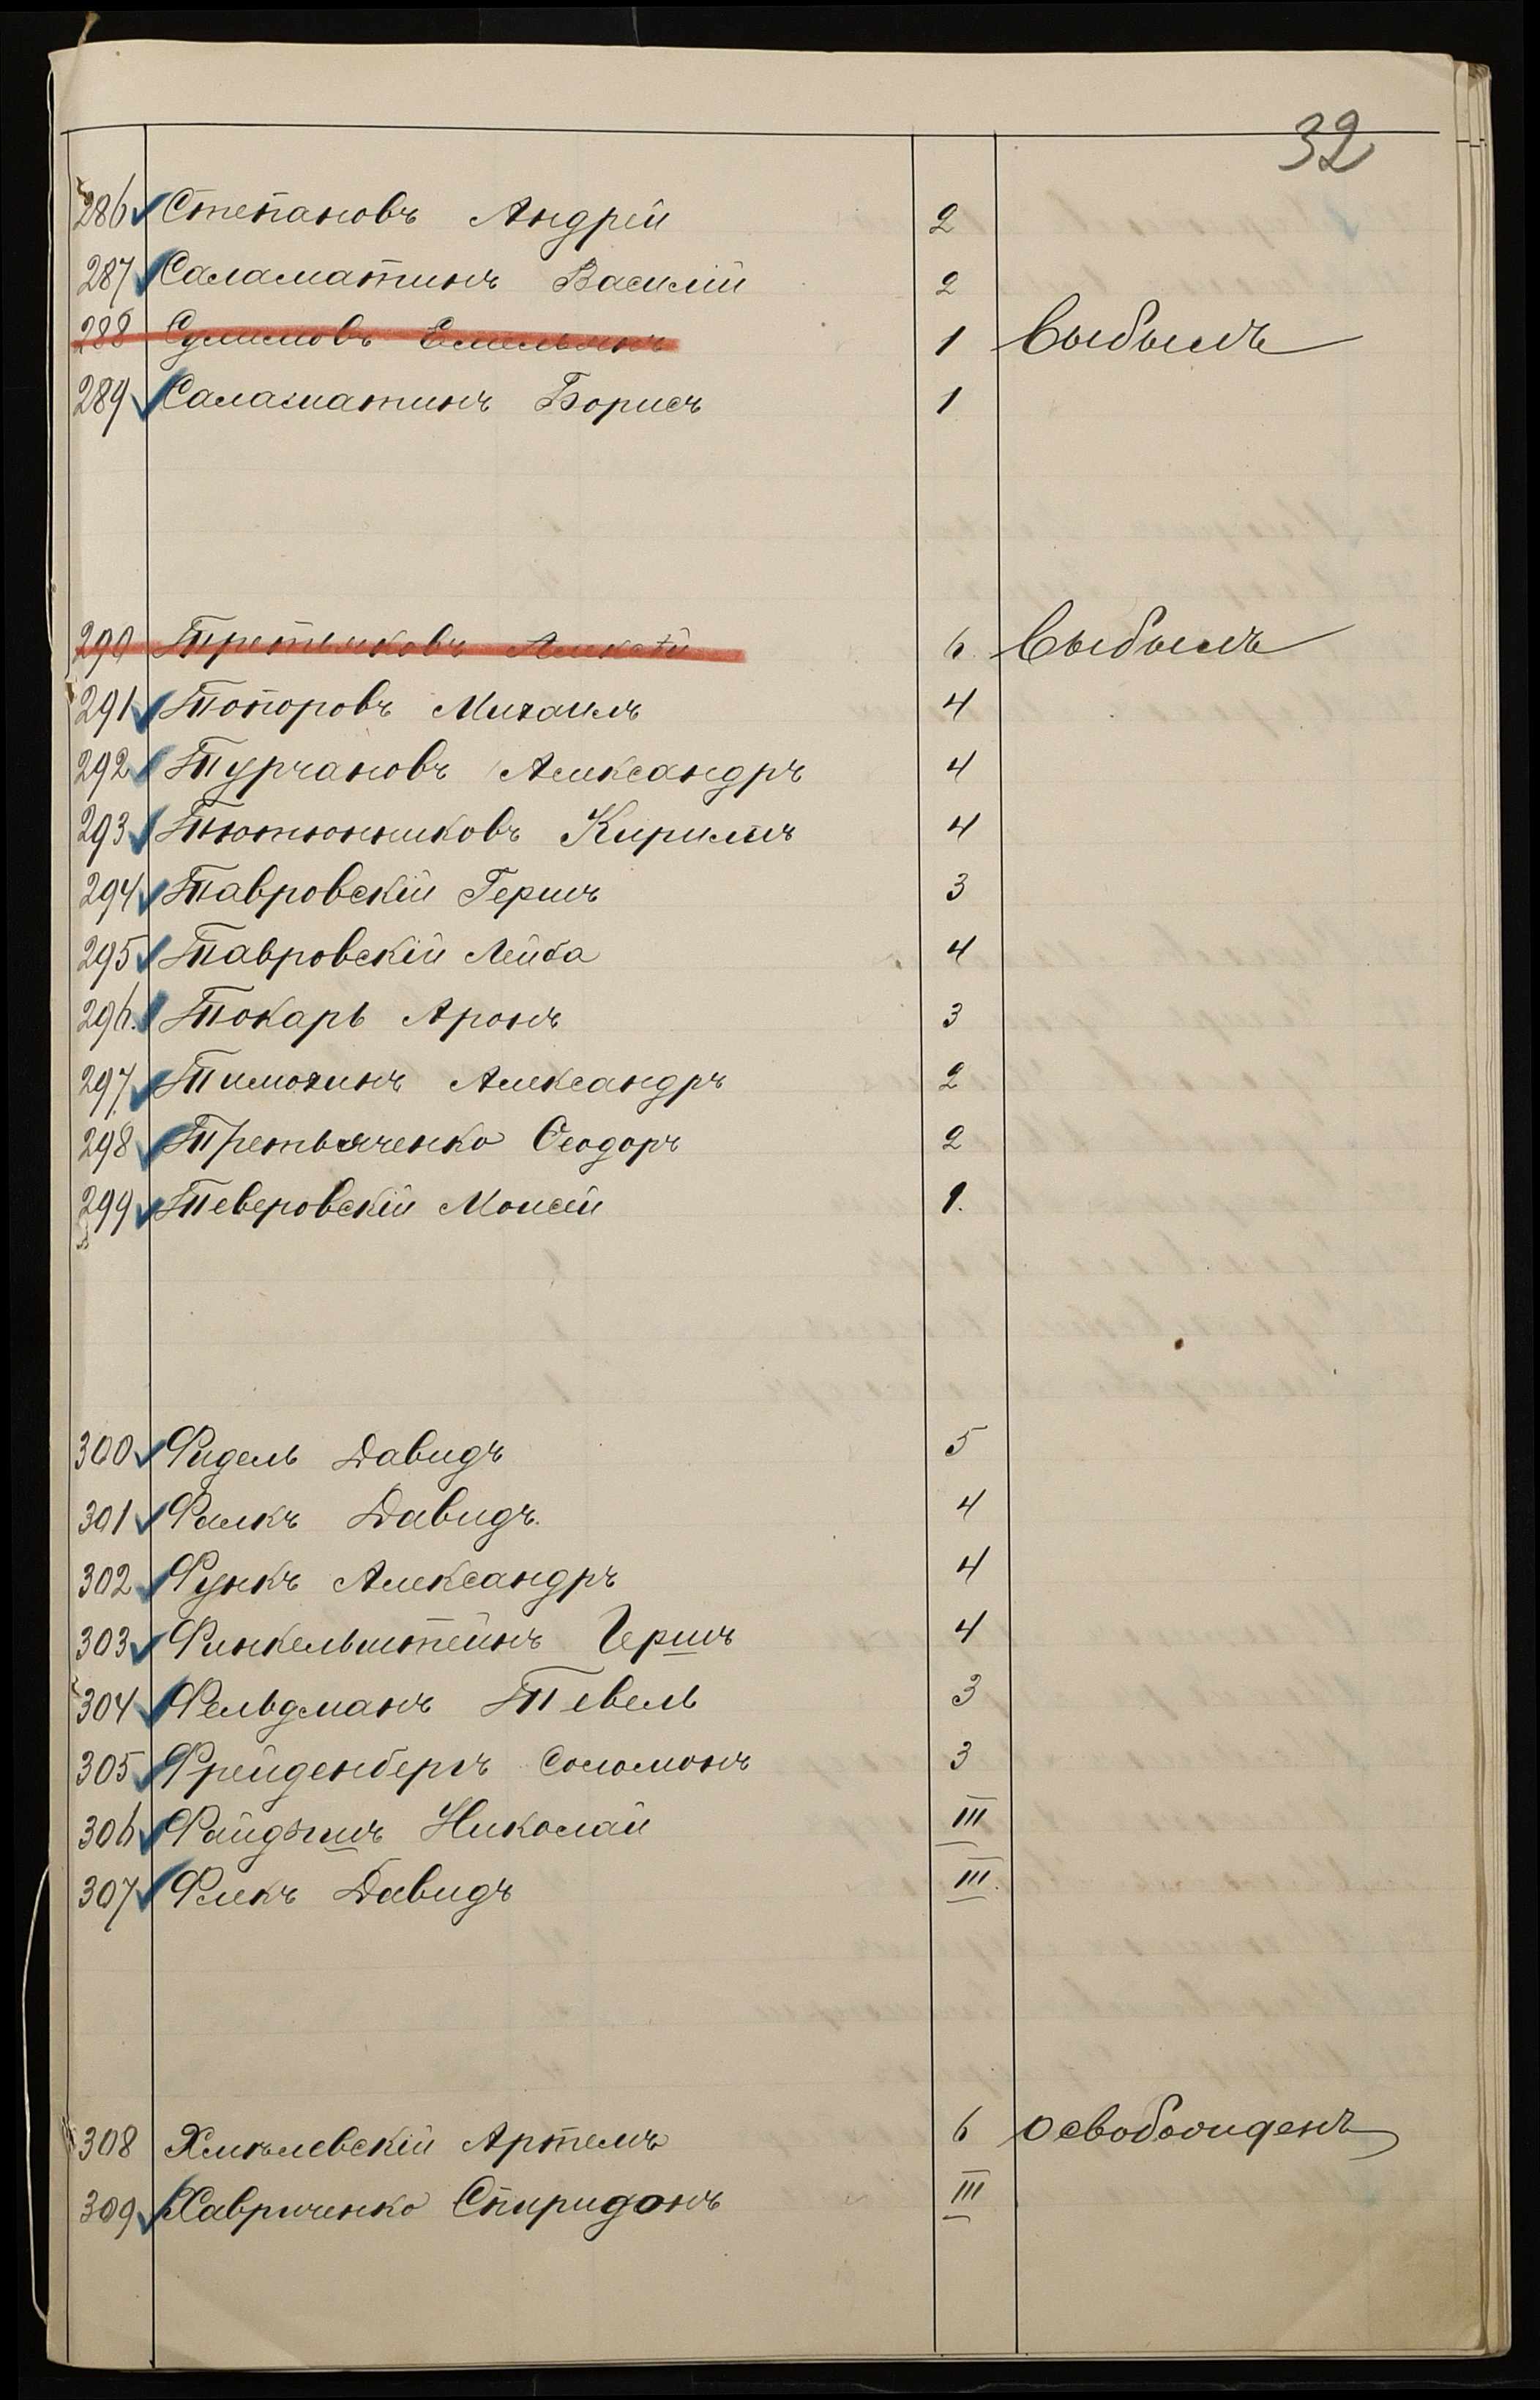 32
286 Степановъ Андрей 2
287 Саламатинъ Василій 2
288 Сулимовъ Емельянъ 1 Выбылъ
289 Саламатинъ Борисъ 1
290 Третьяковъ Алексѣй 6 Выбылъ
291 Топоровъ Михаилъ 4
292 Турчановъ Александръ 4
293 Тютюнниковъ Кириллъ 4
294 Тавровскій Гершъ 3
295 Тавровскій Лейба 4
296. Токарь Аронъ 3
297 Тимохинъ Александръ 2
298 Третьяченко Ѳеодоръ 2
299 Теверовскій Моисей 1.
300 Фидель Давидъ 5
301 Фалкъ Давидъ. 4
302 Функъ Александръ 4
303 Финкельштейнъ Гершъ 4
304 Фельдманъ Тевель 3
305 Фрейденбергъ Соломонъ 3
306 Николай III
307 Давидъ III.
308 Хмѣлевскій Артемъ 6 освобожденъ
309 Хавриченко Спиридонъ III